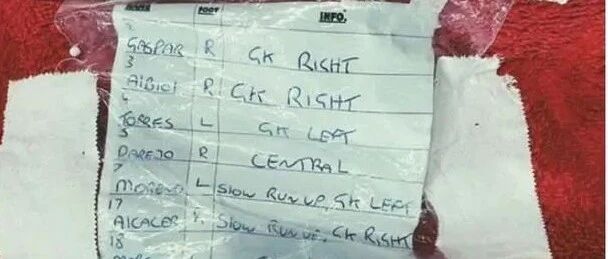 NAME FOOT INFO.
2
GASPAR R GK RIGHT
3
AlBIOl R GK RIGHT
4
TORRES L GK LEFT
5
PAREJO R CENTRAL
7
MORENO L SlOW RUN UP, GK LEFT
17
AlCACER R SlOW RUN UP, GK RIGHT
18